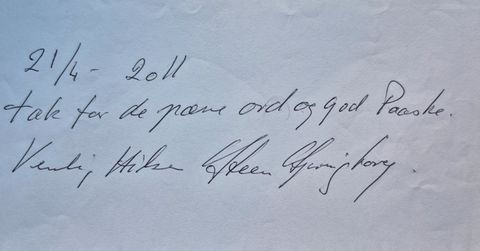 21/4- 2011
tak for de pæne ord og god Paaske.
Venlig Hilsen Steen Springborg.